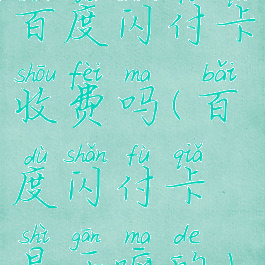 百度闪付卡
shōu fèi ma bǎi
收费吗(百
dù shǎn fù qiǎ
度闪付卡
shì gān ma de
是干嘛的)